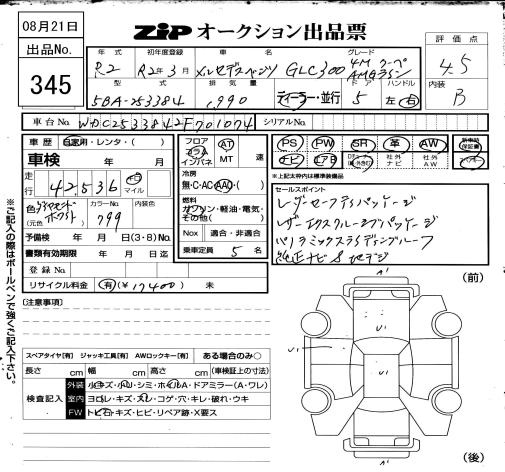 08月21日
出品No.
345
ZIP オークション出品票
評価点
4.5
内装
B
年式 初年度登録 車名 グレード
R2 R2年3月 メルセデスベンツ GLC300 4M クーペ
AMGライン
型式 排気量 ドア ハンドル
5BA-253384 1,990 ディーラー・並行 5 左・右
車台No. WDC2533842F701074 シリアルNo.
車歴 自家用・レンタ・( )
車検 年 月
走行 42,536 マイル
色 ダイヤモンドホワイト
(元色) カラーNo. 799 内装色
予備検 年 月 日(3・8)No.
書類有効期限 年 月 日迄
登録No.
リサイクル料金 有(¥ 17400 ) 未
フロア コラム インパネ AT MT 速
冷房 無・C・AC・AAC
燃料 ガソリン・軽油・電気・その他( )
Nox 適合・非適合
乗車定員 5 名
PS PW SR 革 AW 新車時保証書
ナビ エアB 社外ナビ 社外AW
※上記太枠内は標準装備品
セールスポイント
レーダーセーフティパッケージ
レザーエクスクルーシブパッケージ
パノラミックスライディングルーフ
純正ナビ 地デジ
※ご記入の際はボールペンで強くご記入下さい。
[注意事項]
スペアタイヤ[有] ジャッキ工具[有] AWロックキー[有] ある場合のみ○
長さ cm 幅 cm 高さ cm (車検証上の寸法)
検査記入
外装 小キズ・小凹・シミ・ホイルA・ドアミラー(A・ワレ)
室内 ヨゴレ・キズ・スレ・コゲ・穴・キレ・破れ・ウキ
FW トビ石・キズ・ヒビ・リペア跡・X要ス
(前)
A'
U'
U'
U'
A'
(後)